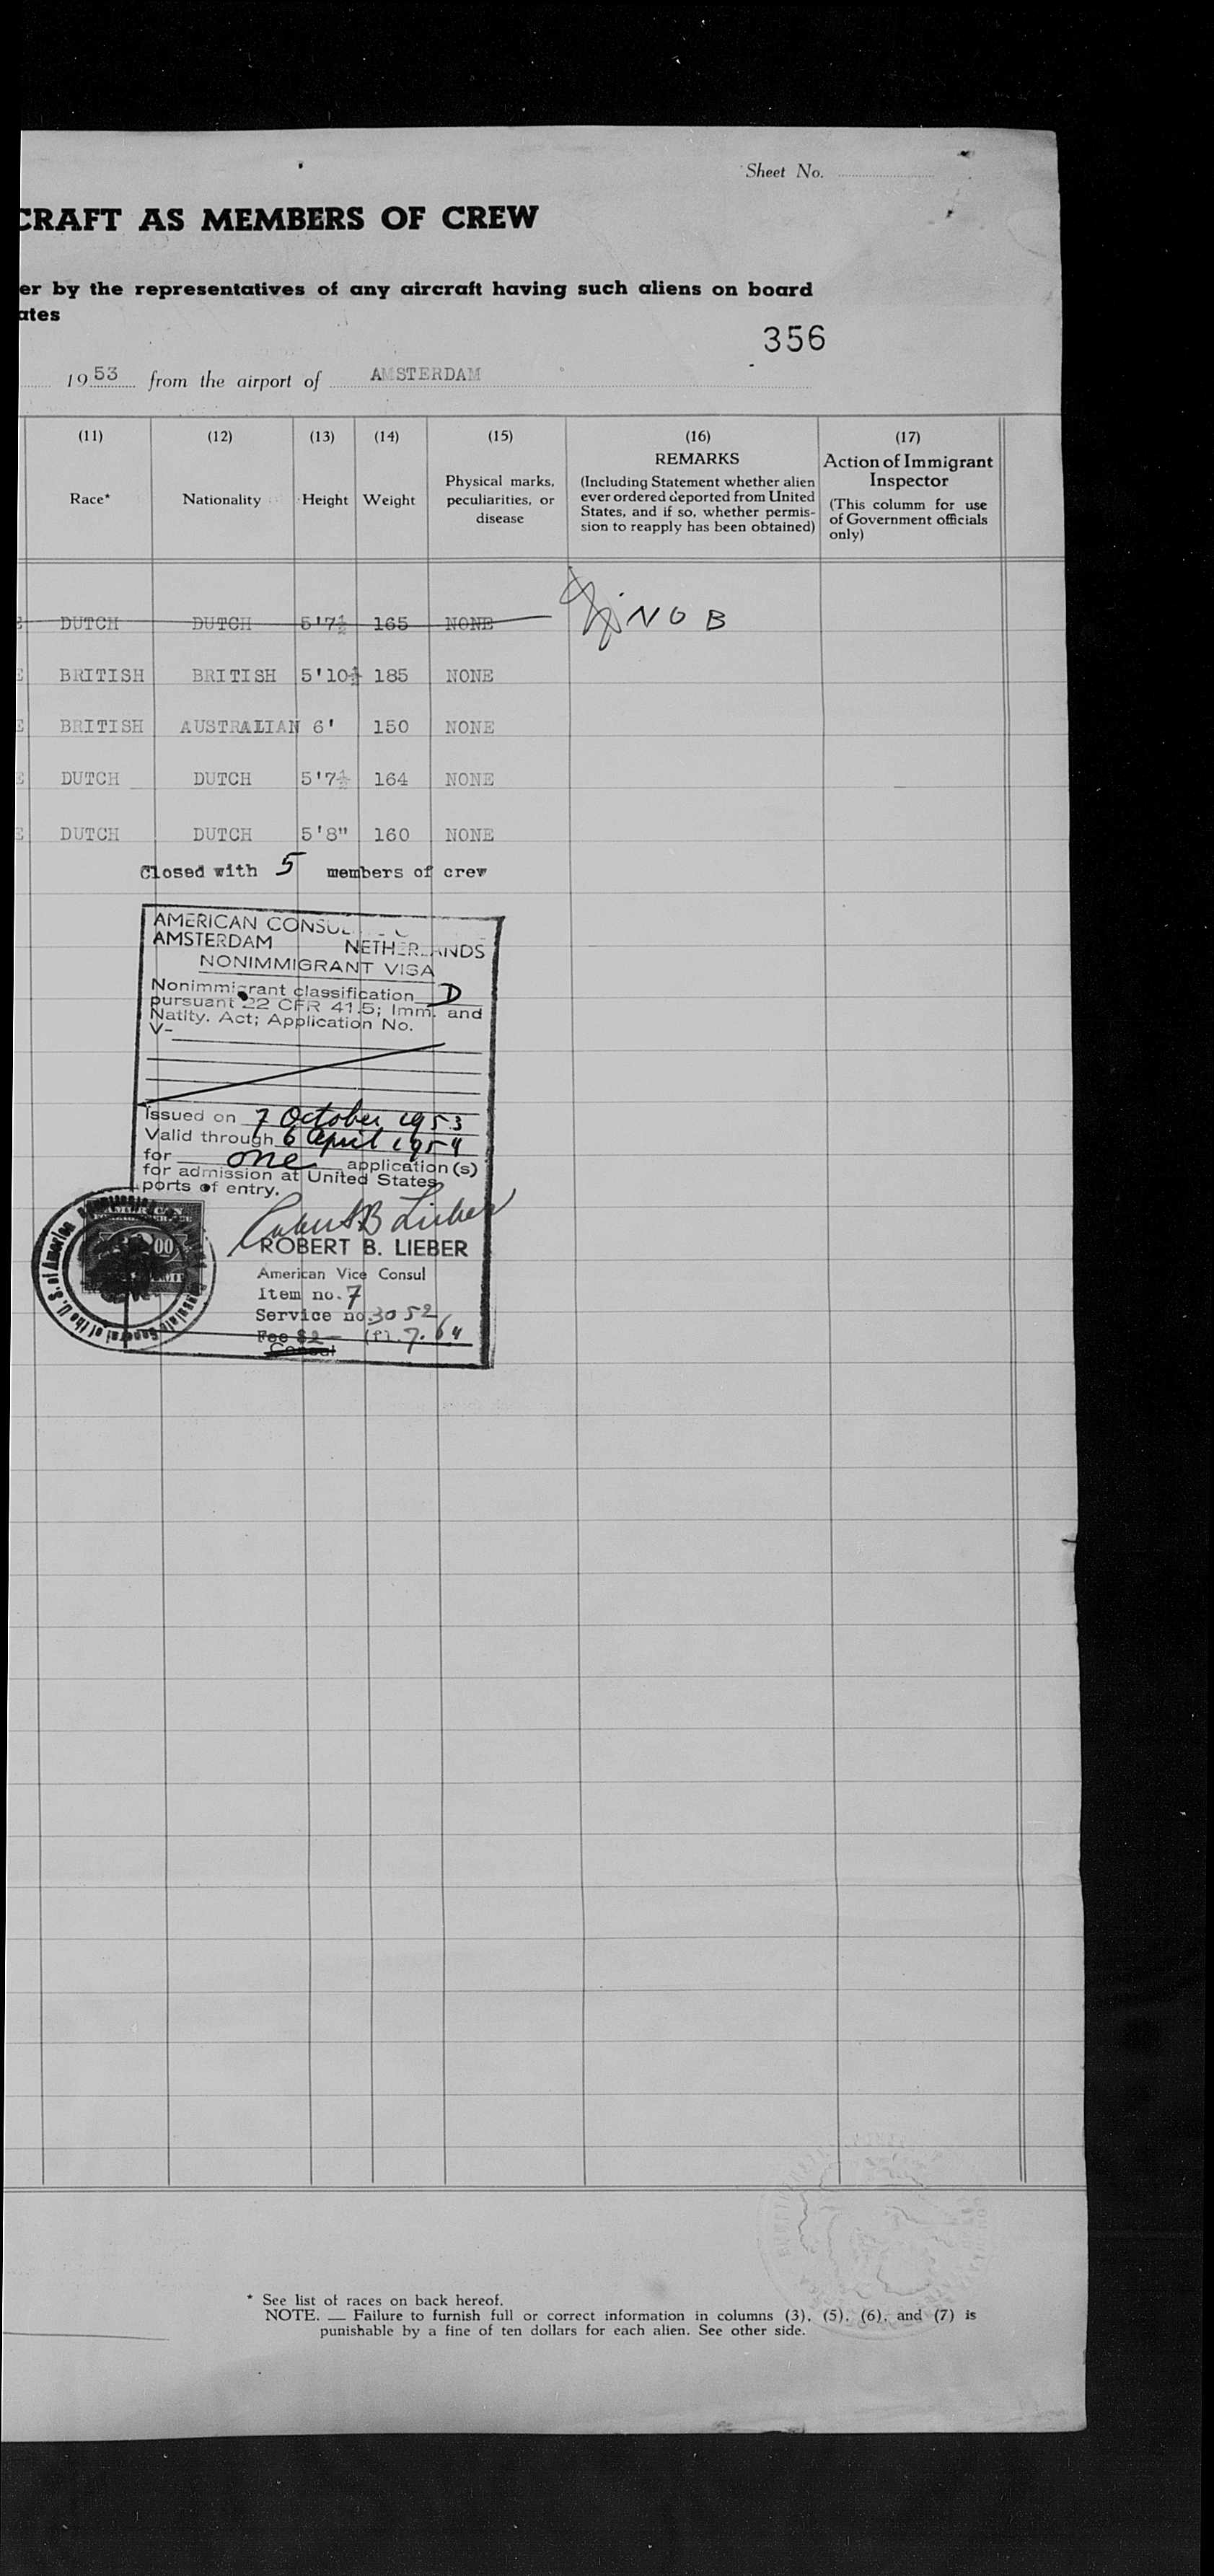 Sheet No.
CRAFT AS MEMBERS OF CREW
er by the representatives of any aircraft having such aliens on board
ates
356
19 53 from the airport of AMSTERDAM
(11) (12) (13) (14) (15) (16) (17)
Race* Nationality Height Weight Physical marks, peculiarities, or disease REMARKS (Including Statement whether alien ever ordered deported from United States, and if so, whether permission to reapply has been obtained) Action of Immigrant Inspector (This column for use of Government officials only)
DUTCH DUTCH 5'7½ 165 NONE N O B
BRITISH BRITISH 5'10¾ 185 NONE
BRITISH AUSTRALIAN 6' 150 NONE
DUTCH DUTCH 5'7½ 164 NONE
DUTCH DUTCH 5'8" 160 NONE
Closed with 5 members of crew
AMERICAN
AMSTERDAM NETHERLANDS
NONIMMIGRANT VISA
Nonimmigrant classification D
pursuant 22 CFR 41.5; Imm. and
Natlty. Act; Application No.
V-
Issued on 7 October 1953
Valid through 6 April 1954
for one application(s)
for admission at United States
ports of entry.
Robert B Lieber
ROBERT B. LIEBER
American Vice Consul
Item no. 7
Service no. 3052
Fee $2 — (fl. 7.64
Consul
AMERICAN
Consulate General of the U.S. of America
* See list of races on back hereof.
NOTE. — Failure to furnish full or correct information in columns (3), (5), (6), and (7) is
punishable by a fine of ten dollars for each alien. See other side.